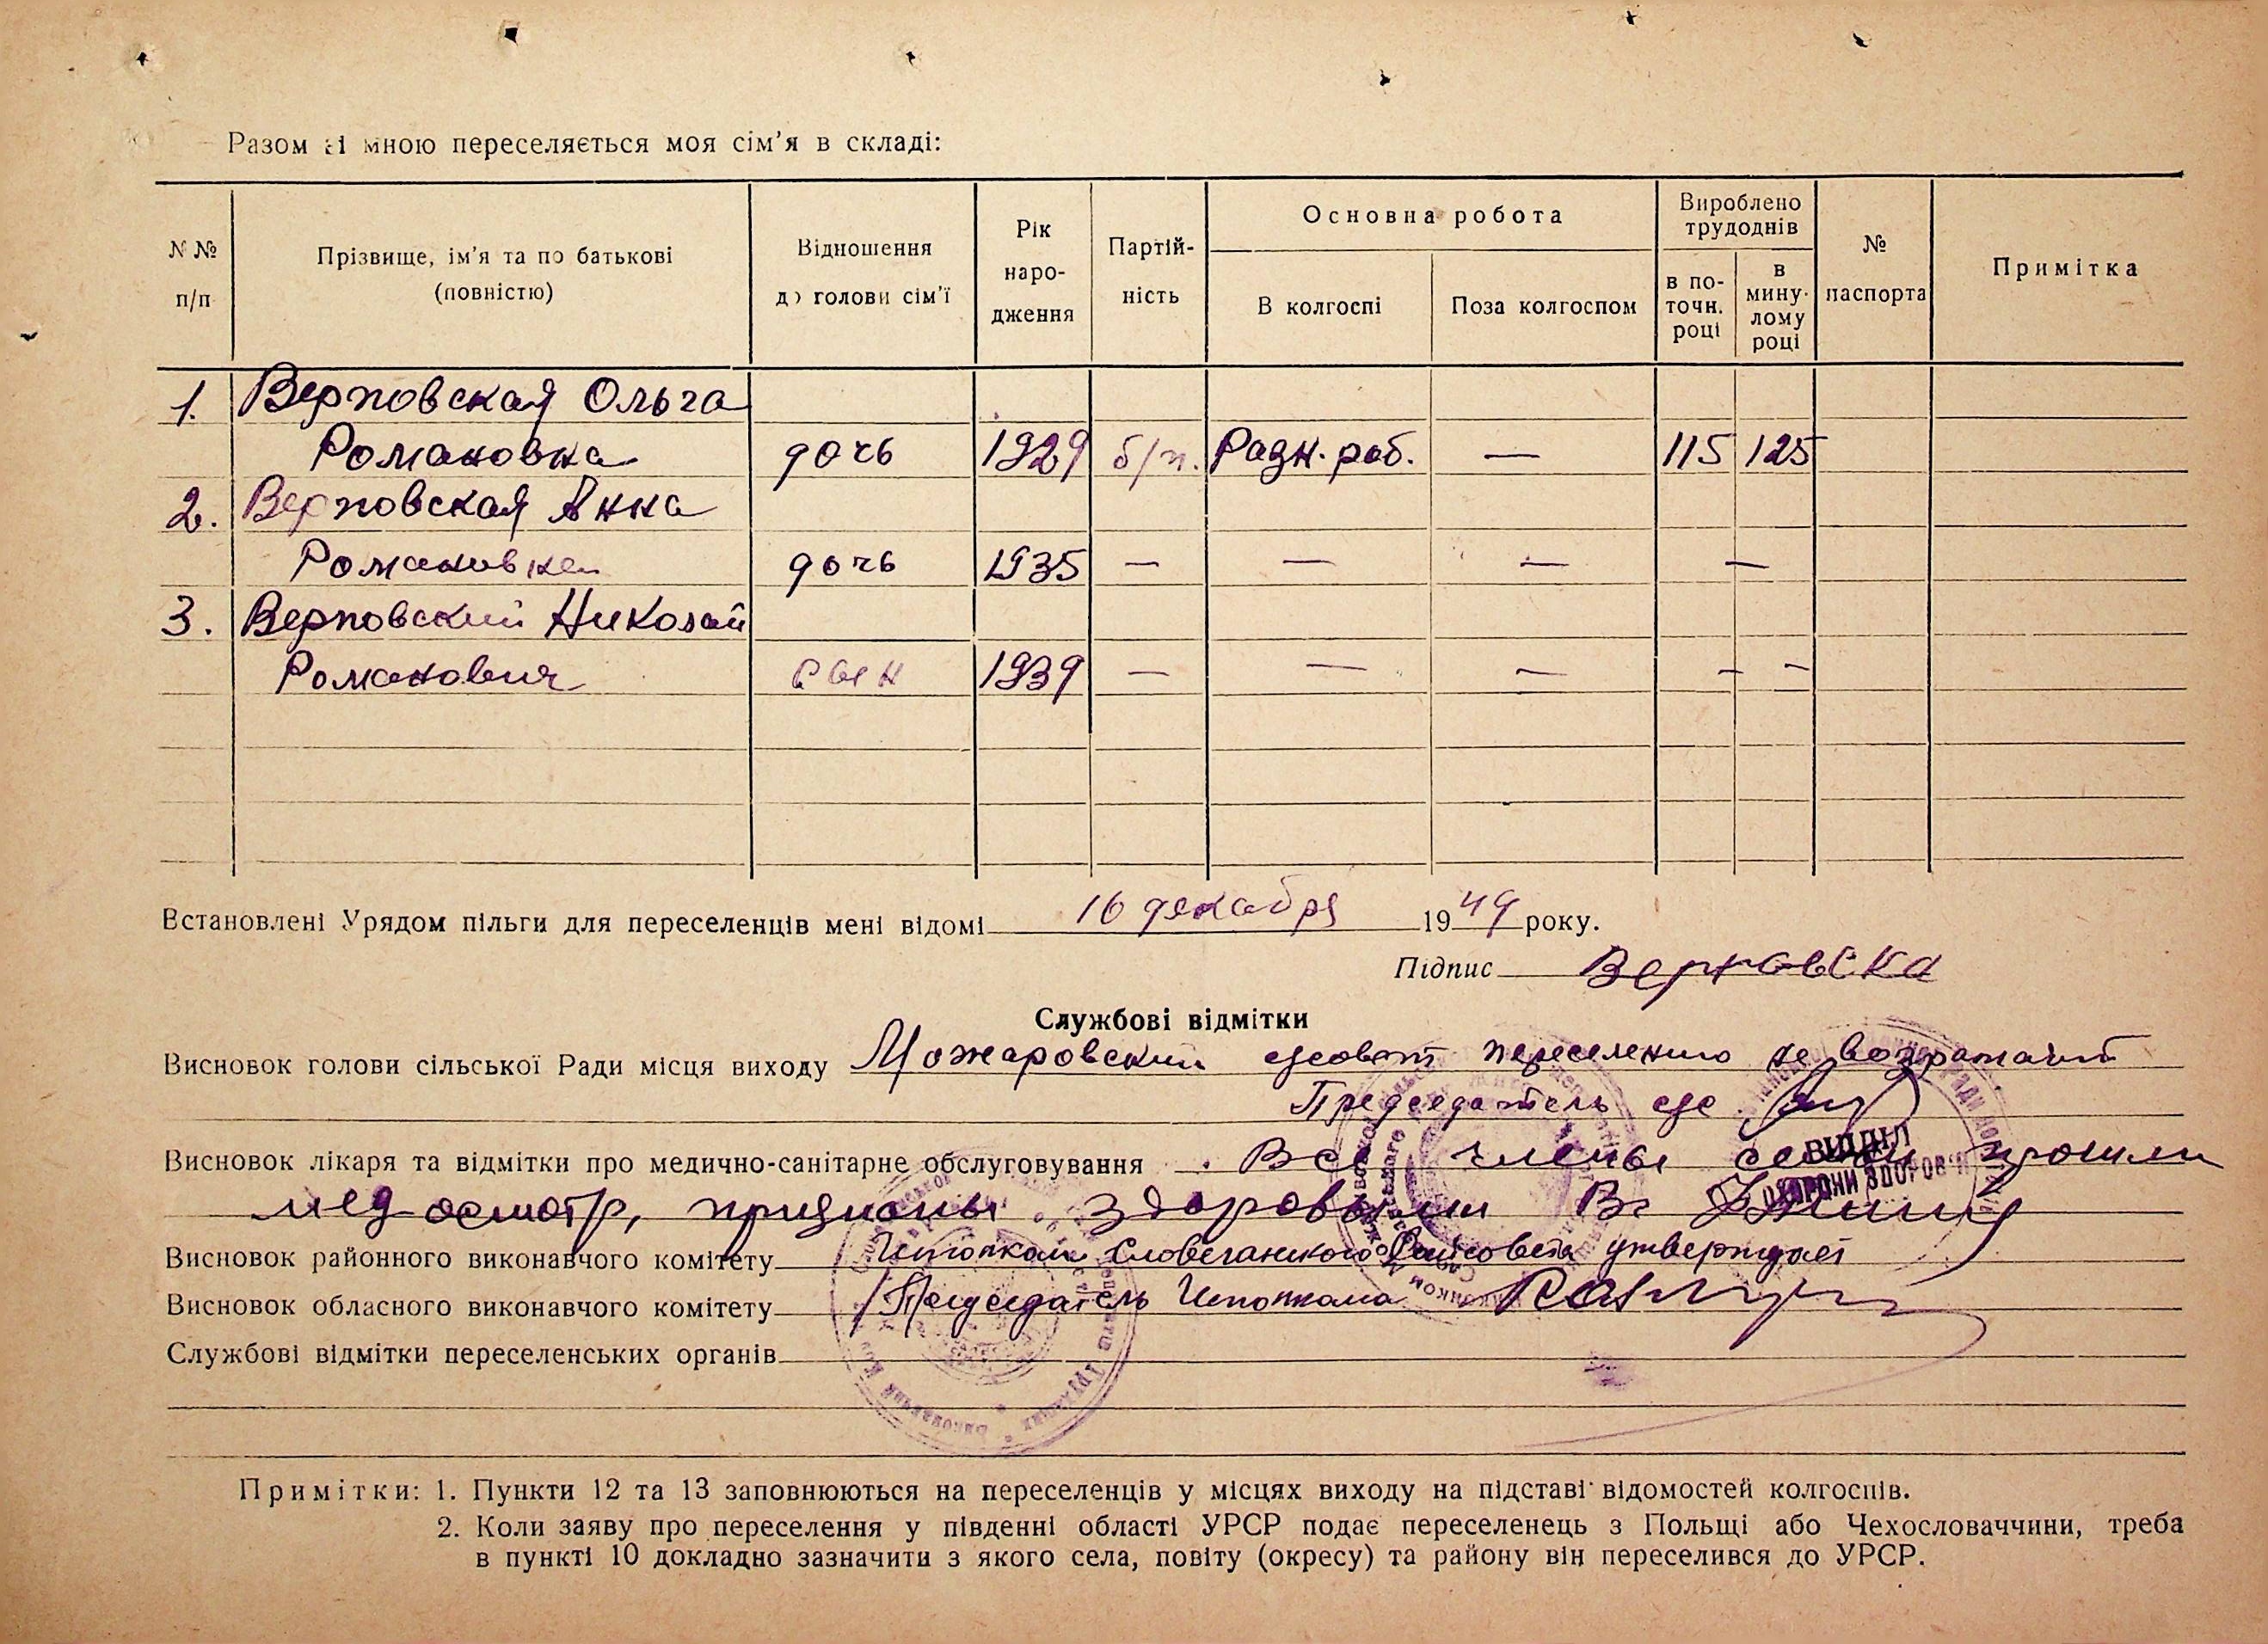 Разом зі мною переселяється моя сім'я в складі:
N №
п/п
Прізвище, ім'я та по батькові
(повністю)
Відношення
до голови сім'ї
Рік
наро-
дження
Партій-
ність
Основна робота
В колгоспі
Поза колгоспом
Вироблено
трудоднів
в по-
точн.
році
в
мину-
лому
році
№
паспорта
Примітка
1. Верповская Ольга
Романовна дочь 1929 б/п. Разн. раб. — 115 125
2. Верповская Анна
Романовна дочь 1935 — — — —
3. Верповский Николай
Романович сын 1939 — — — — —
Встановлені Урядом пільги для переселенців мені відомі 16 декабря 1949 року.
Підпис Верповска
Службові відмітки
Висновок голови сільської Ради місця виходу Можаровский сельсовет переселению не возражает
Председатель с/с
Висновок лікаря та відмітки про медично-санітарне обслуговування Все члены семьи прошли
мед осмотр, признаны здоровыми Вр.
ВІДДІЛ
ОХОРОНИ ЗДОРОВ'Я
Висновок районного виконавчого комітету Исполком Словечанского Райсовета утверждает
Висновок обласного виконавчого комітету Председатель Исполкома
Службові відмітки переселенських органів
Примітки: 1. Пункти 12 та 13 заповнюються на переселенців у місцях виходу на підставі відомостей колгоспів.
2. Коли заяву про переселення у південні області УРСР подає переселенець з Польщі або Чехословаччини, треба
в пункті 10 докладно зазначити з якого села, повіту (окресу) та району він переселився до УРСР.